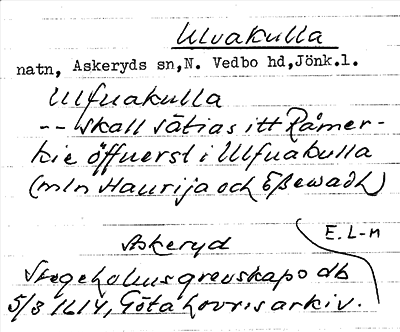 Ulvakulla
natn, Askeryds sn, N. Vedbo hd, Jönk.l.
Ulfuakulla
-- skall sätias itt Råmer-
kie öffuerst i Ulfuakulla
(mln Haurija och Eßewadh)
Askeryd
E. L-n
Stegeholms grevskaps db
5/8 1614, Göta hovrs arkiv.